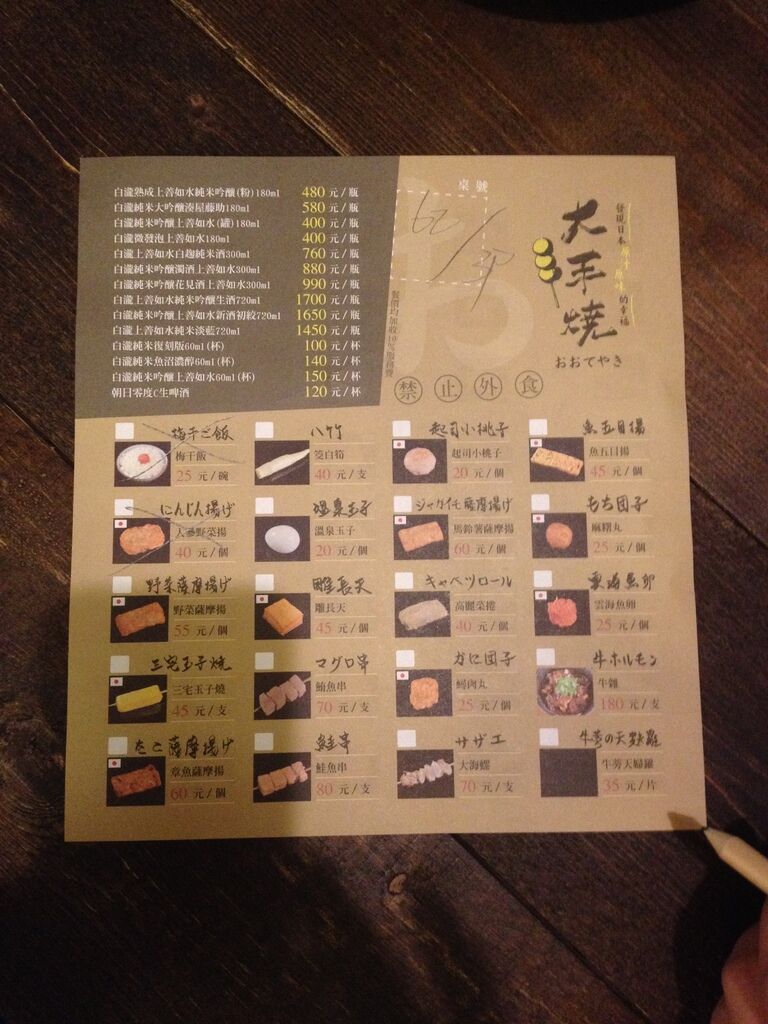 白瀧熟成上善如水純米吟釀(粉)180ml 480 元/瓶
白瀧純米大吟釀湊屋藤助180ml 580 元/瓶
白瀧純米吟釀上善如水(罐)180ml 400 元/瓶
白瀧微發泡上善如水180ml 400 元/瓶
白瀧上善如水白麹純米酒300ml 760 元/瓶
白瀧純米吟釀濁酒上善如水300ml 880 元/瓶
白瀧純米吟釀花見酒上善如水300ml 990 元/瓶
白瀧上善如水純米吟釀生酒720ml 1700 元/瓶
白瀧純米吟釀上善如水新酒初絞720ml 1650 元/瓶
白瀧上善如水純米淡藍720ml 1450 元/瓶
白瀧純米復刻版60ml(杯) 100 元/杯
白瀧純米魚沼濃醇60ml(杯) 140 元/杯
白瀧純米吟釀上善如水60ml(杯) 150 元/杯
朝日零度C生啤酒 120 元/杯
桌號
餐價均加收10%服務費
發現日本原汁原味的幸福
大手燒
おおてやき
禁止外食
梅干ご飯
梅干飯
25 元/碗
八竹
筊白筍
40 元/支
起司小桃子
起司小桃子
20 元/個
魚五目揚
魚五目揚
45 元/個
にんじん揚げ
人蔘野菜揚
40 元/個
溫泉玉子
溫泉玉子
20 元/個
ジャガイモ薩摩揚げ
馬鈴薯薩摩揚
60 元/個
もち団子
麻糬丸
25 元/個
野菜薩摩揚げ
野菜薩摩揚
55 元/個
雕長天
雕長天
45 元/個
キャベツロール
高麗菜捲
40 元/個
雲海魚卵
雲海魚卵
25 元/個
三宅玉子燒
三宅玉子燒
45 元/支
マグロ串
鮪魚串
70 元/支
かに団子
蟳肉丸
25 元/個
牛ホルモン
牛雜
180 元/支
たこ薩摩揚げ
章魚薩摩揚
60 元/個
鮭串
鮭魚串
80 元/支
サザエ
大海螺
70 元/支
牛蒡の天麩羅
牛蒡天婦羅
35 元/片